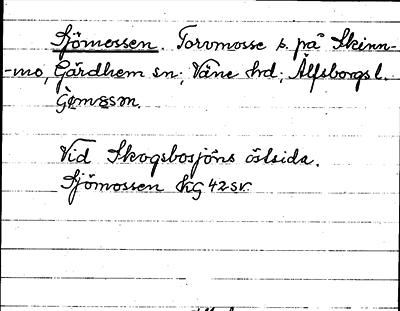 Sjömossen. Torvmosse s. på Skinn-
-mo, Gärdhem sn; Väne hd; Älfsborgs l.
Vid Skogsbosjöns östsida.
Sjömossen kG 42 sv.